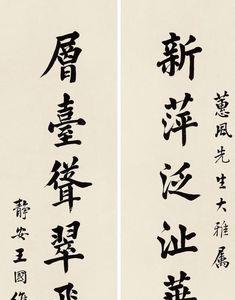 蕙風先生大雅屬
新萍泛沚華
層臺聳翠
靜安王國